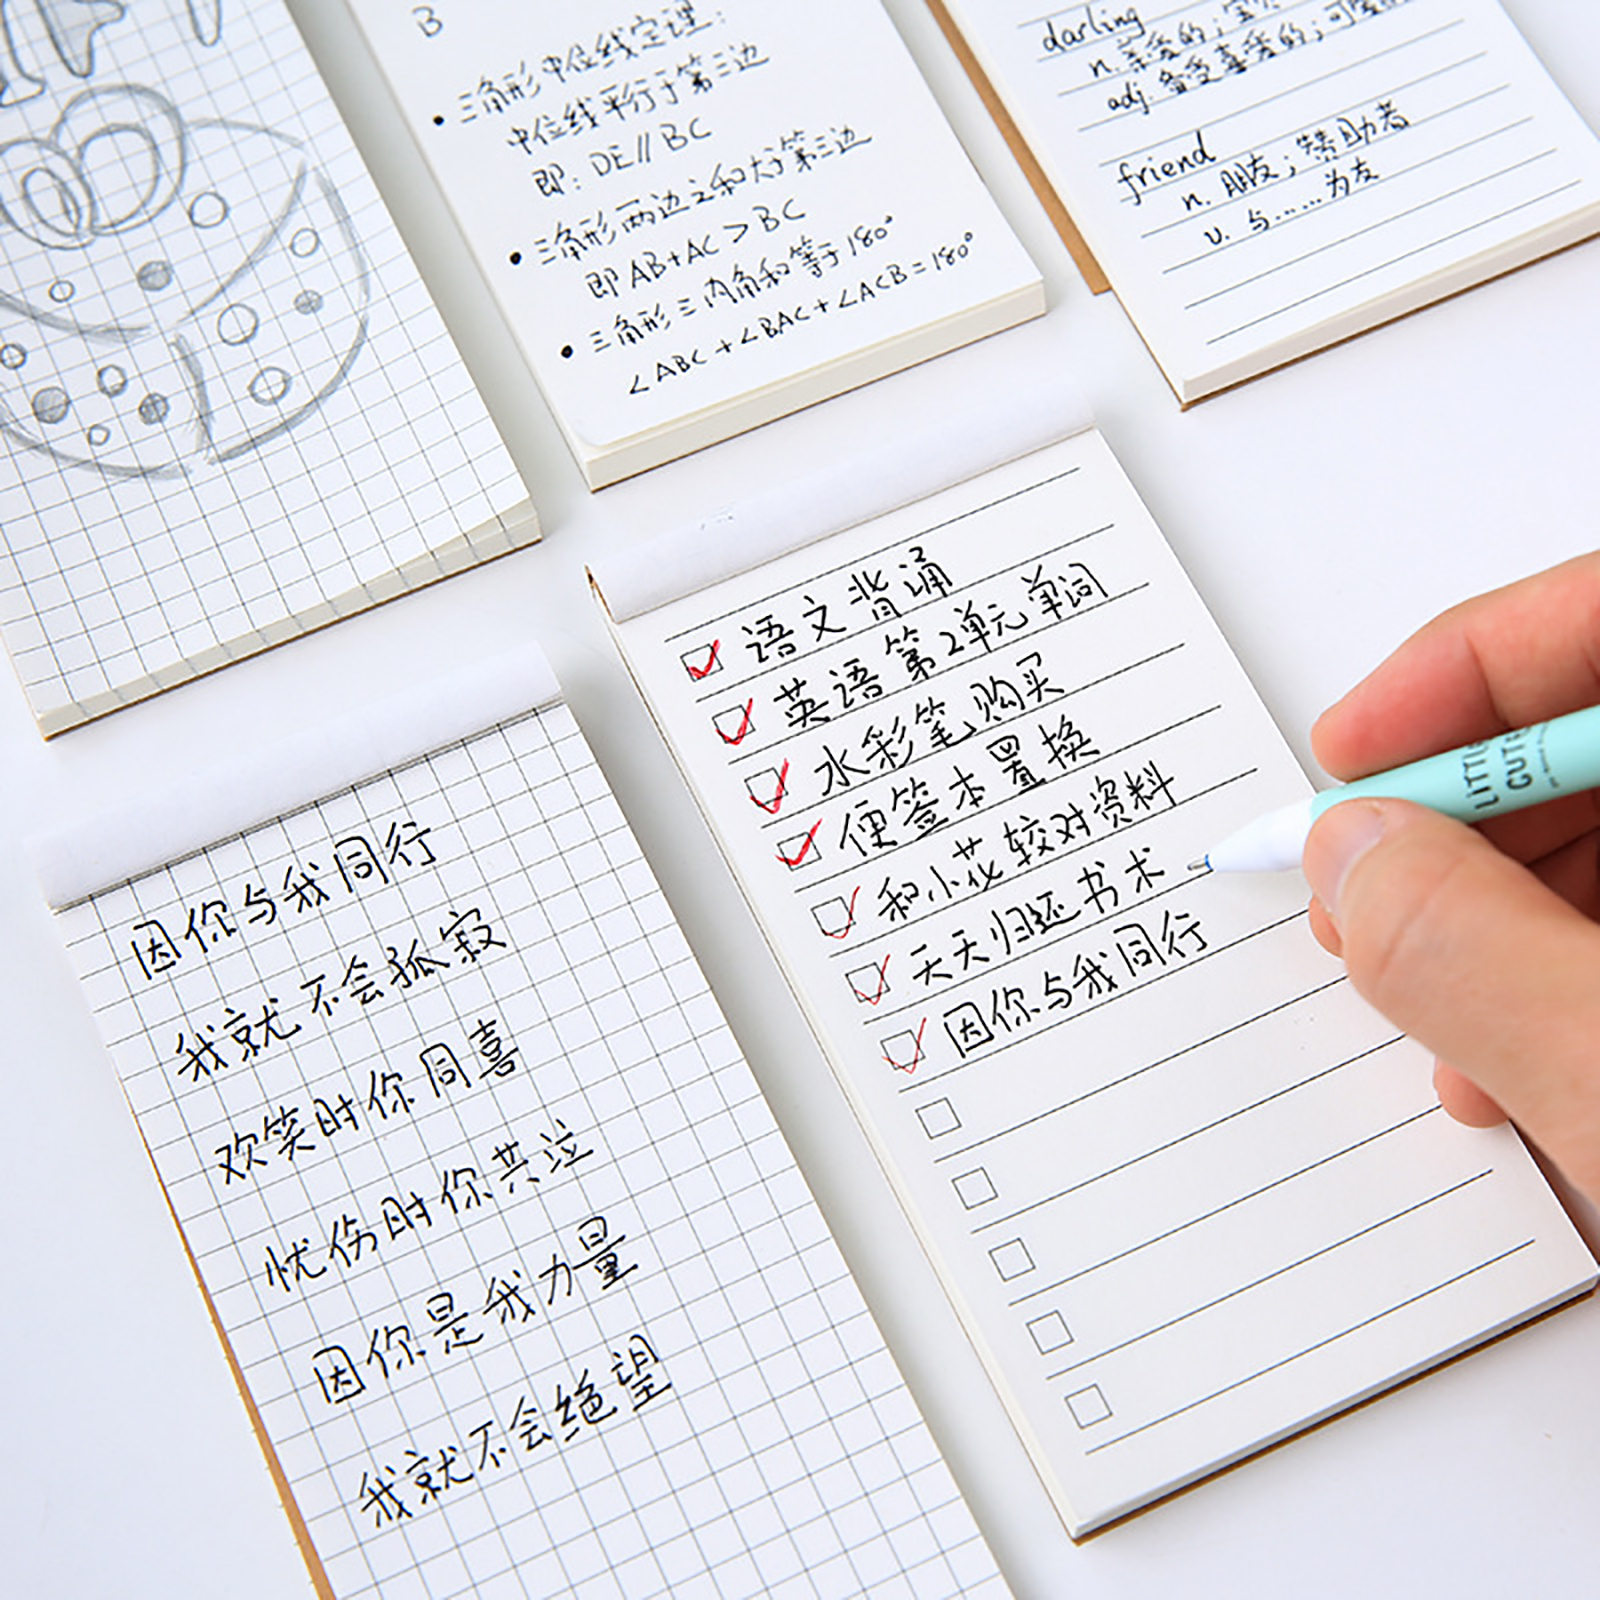 B
三角形中位线定理：
中位线平行于第三边
即：DE//BC
三角形两边之和大于第三边
即AB+AC>BC
三角形三内角和等于180°
∠ABC+∠BAC+∠ACB=180°
darling
n.亲爱的；宝贝
adj.备受喜爱的；可爱的
friend
n.朋友；赞助者
v.与……为友
语文背诵
英语第2单元单词
水彩笔购买
便签本置换
和小花较对资料
天天归还书术
因你与我同行
LITTLE
CUTE
因你与我同行
我就不会孤寂
欢笑时你同喜
忧伤时你共泣
因你是我力量
我就不会绝望